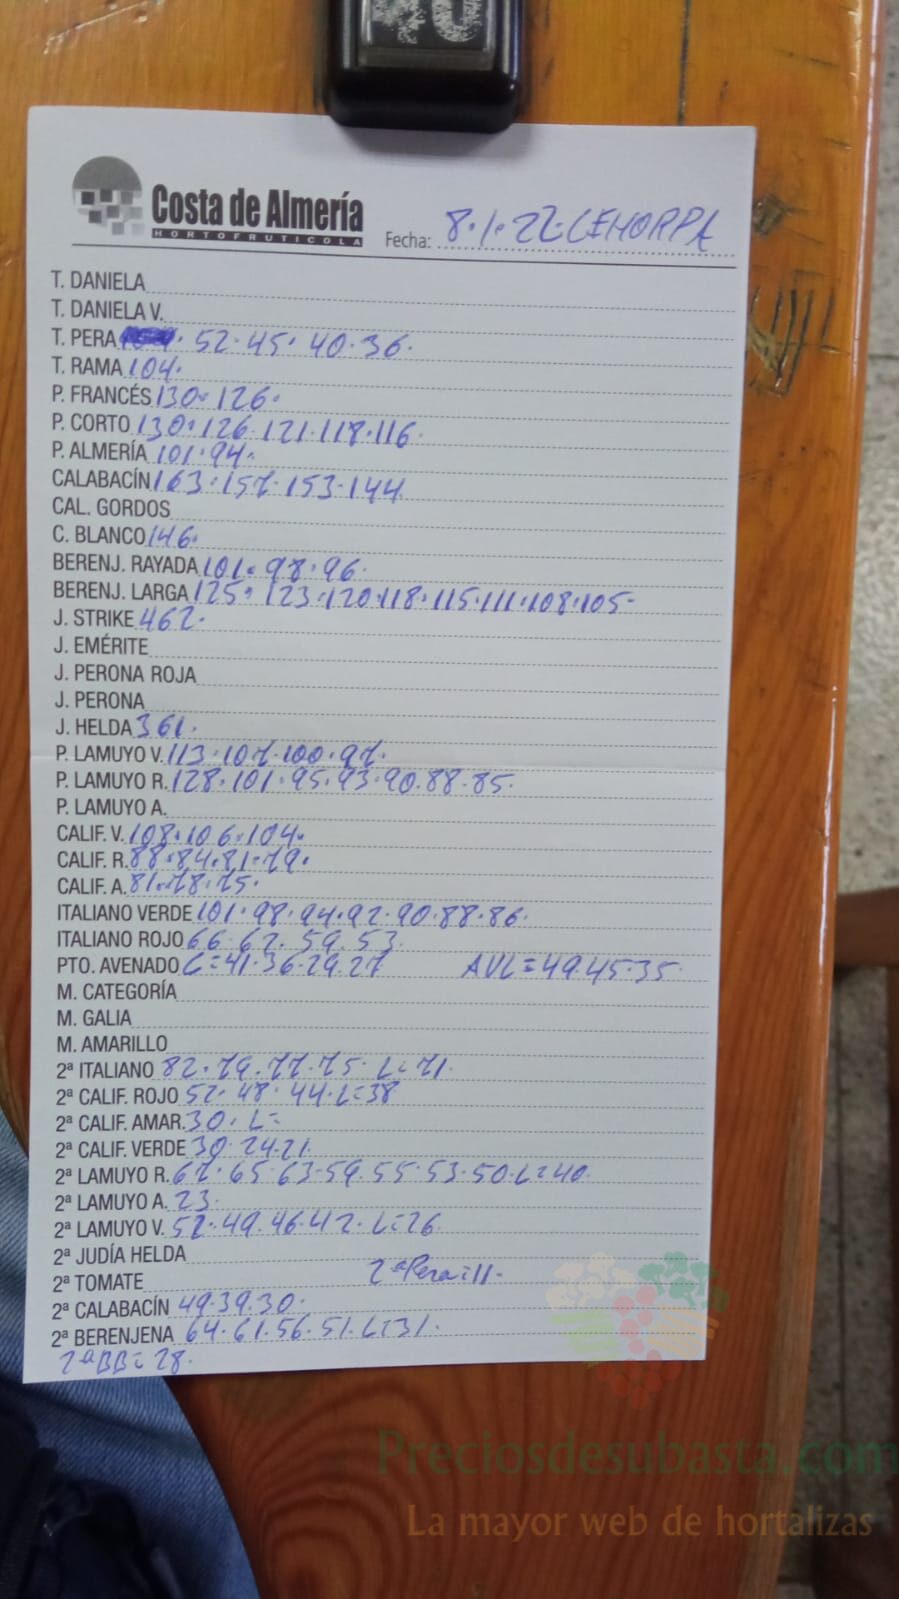 Costa de Almería
HORTOFRUTICOLA
Fecha: 8.1.22. CEHORPA
T. DANIELA
T. DANIELA V.
T. PERA 52.45.40.36.
T. RAMA 104.
P. FRANCÉS 130.126.
P. CORTO 130.126.121.118.116.
P. ALMERÍA 101.94.
CALABACÍN 163.157.153.144
CAL. GORDOS
C. BLANCO 146.
BERENJ. RAYADA 101.98.96.
BERENJ. LARGA 125.123.120.118.115.111.108.105-
J. STRIKE 462.
J. EMÉRITE
J. PERONA ROJA
J. PERONA
J. HELDA 361.
P. LAMUYO V. 113.107.100.97.
P. LAMUYO R. 128.101.95.93.90.88.85.
P. LAMUYO A.
CALIF. V. 108.106.104.
CALIF. R. 88.84.81.79.
CALIF. A. 81.78.75.
ITALIANO VERDE 101.98.94.92.90.88.86.
ITALIANO ROJO 66.62.59.53.
PTO. AVENADO L=41.36.29.27 AVL=49.45.35.
M. CATEGORÍA
M. GALIA
M. AMARILLO
2ª ITALIANO 82.79.77.75. L=71.
2ª CALIF. ROJO 52.48.44.L=38
2ª CALIF. AMAR. 30. L=
2ª CALIF. VERDE 30.24.21.
2ª LAMUYO R. 67.65.63.59.55.53.50.L=40.
2ª LAMUYO A. 23.
2ª LAMUYO V. 52.49.46.42. L=26
2ª JUDÍA HELDA
2ª TOMATE 2ª Pera=11.
2ª CALABACÍN 49.39.30.
2ª BERENJENA 64.61.56.51.L=31.
2ªBB=28.
Preciosdesubasta.com
La mayor web de hortalizas